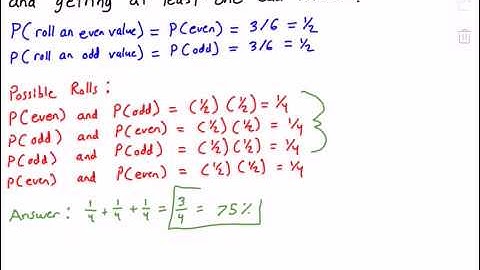 and getting at least one odd
P(roll an even value) = P(even) = 3/6 = ½
P(roll an odd value) = P(odd) = 3/6 = ½
Possible Rolls:
P(even) and P(odd) = (½)(½) = ¼
P(odd) and P(even) = (½)(½) = ¼
P(odd) and P(odd) = (½)(½) = ¼
P(even) and P(even) = (½)(½) = ¼
Answer: ¼ + ¼ + ¼ = ¾ = 75%